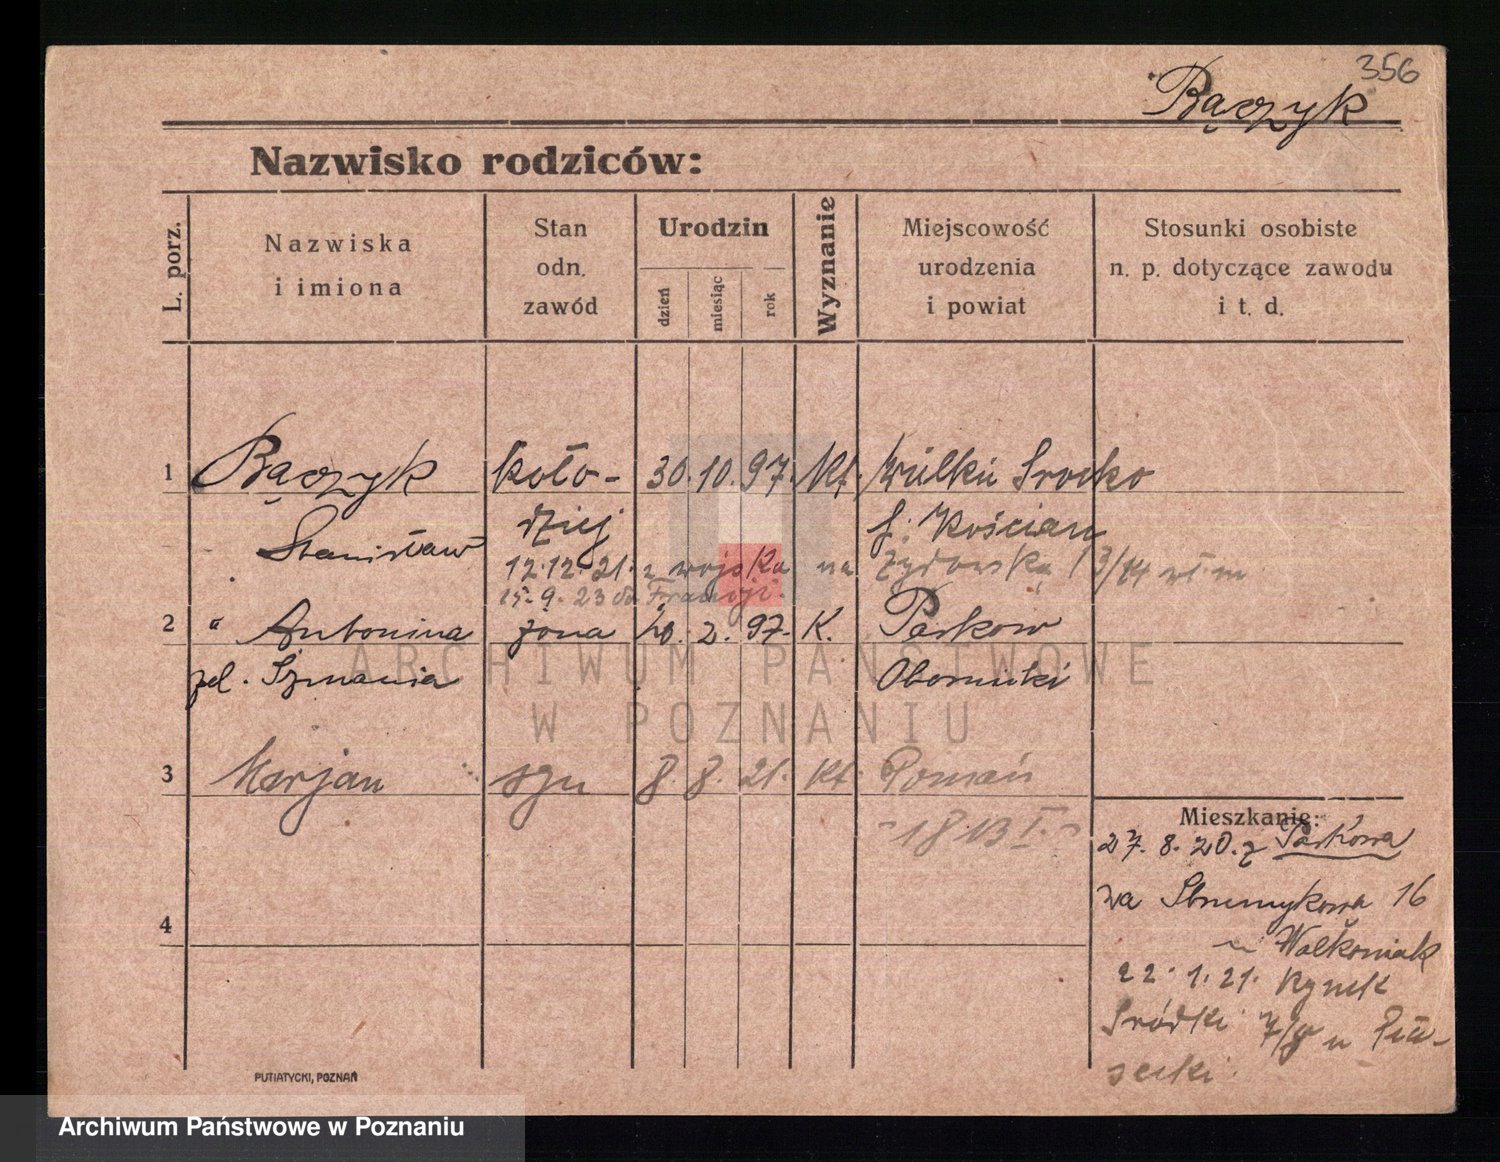 356
Bączyk
Nazwisko rodziców:
L. porz.
Nazwiska
i imiona
Stan
odn.
zawód
Urodzin
dzień
miesiąc
rok
Wyznanie
Miejscowość
urodzenia
i powiat
Stosunki osobiste
n. p. dotyczące zawodu
i t. d.
1 Bączyk koło- 30. 10. 97. Kt. Wielkie Srocko
Stanisław dziej p. Kościan
12.12.21. z wojska na Żydowska 13/14 wł. m
15.9.23 do Francji.
2 " Antonina żona 20. 2. 97. K. Parkow
zel. Szmania Oborniki
3 Marjan syn 8. 8. 21. Kt. Poznań
18 13 I.
Mieszkanie:
27. 8. 20. z Parkowa
na Strumykowa 16
u Wałkoniak
22. 1. 21. Rynek
Śródki 7/8 u Pia-
secki.
4
PUTIATYCKI, POZNAŃ
ARCHIWUM PAŃSTWOWE
W POZNANIU
Archiwum Państwowe w Poznaniu